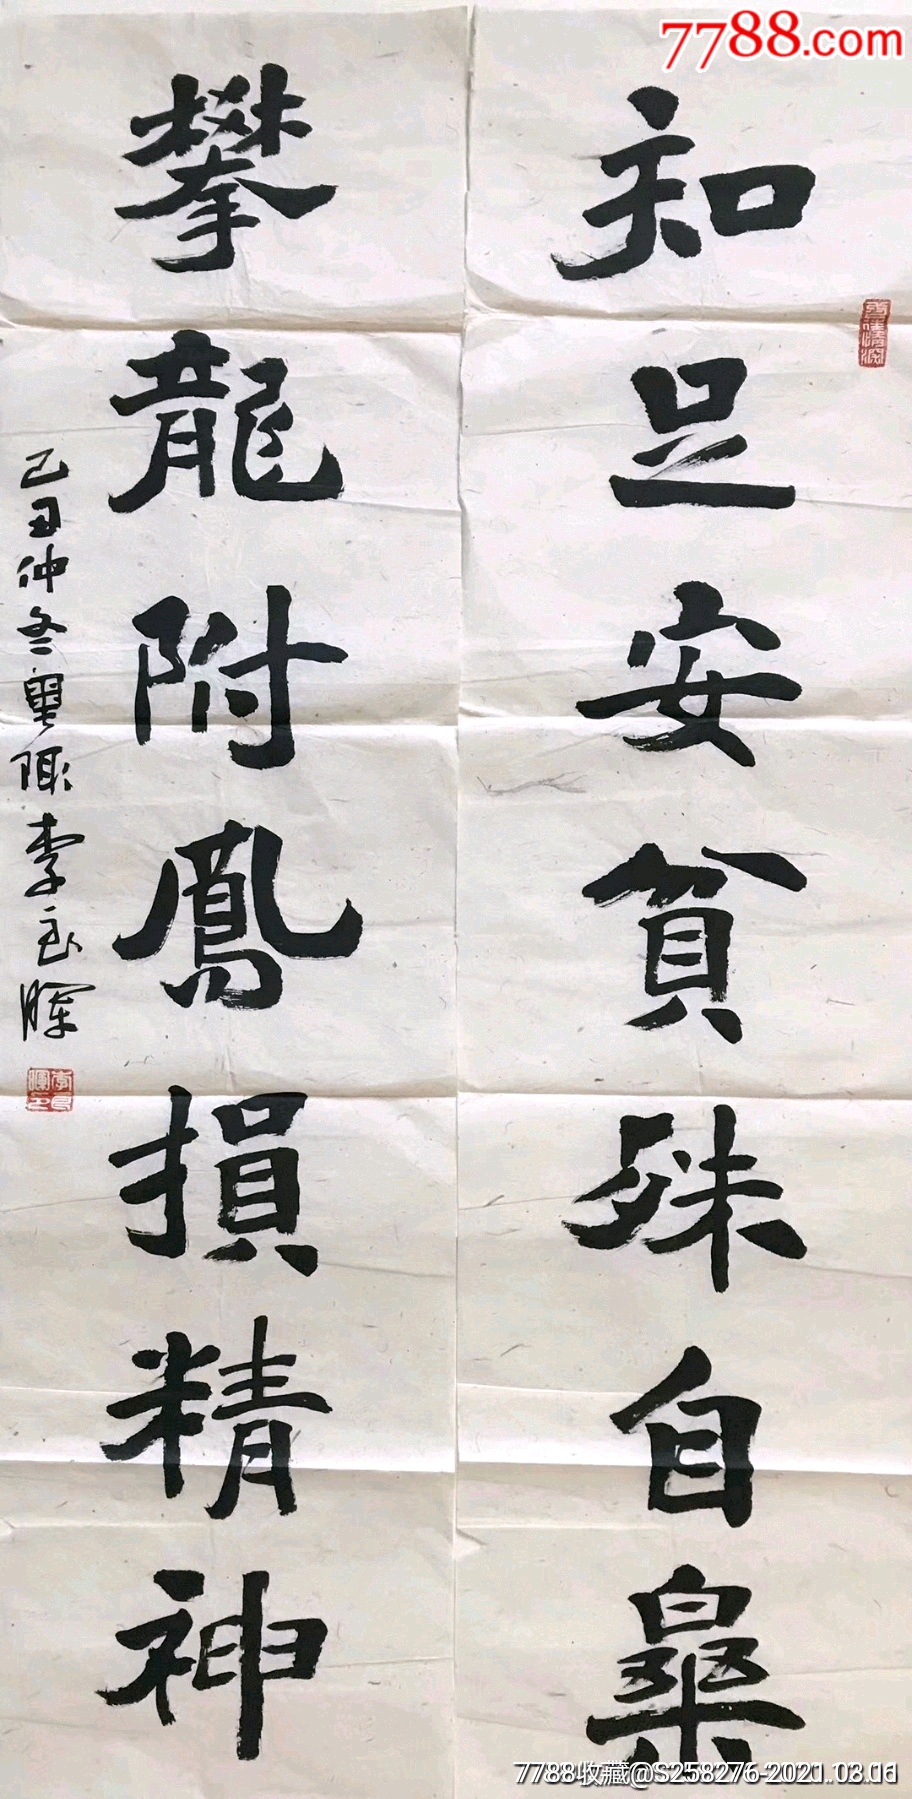 7788.com
知足安貧殊自樂
攀龍附鳳損精神
己丑仲冬粤陬李
7788收藏@S258276